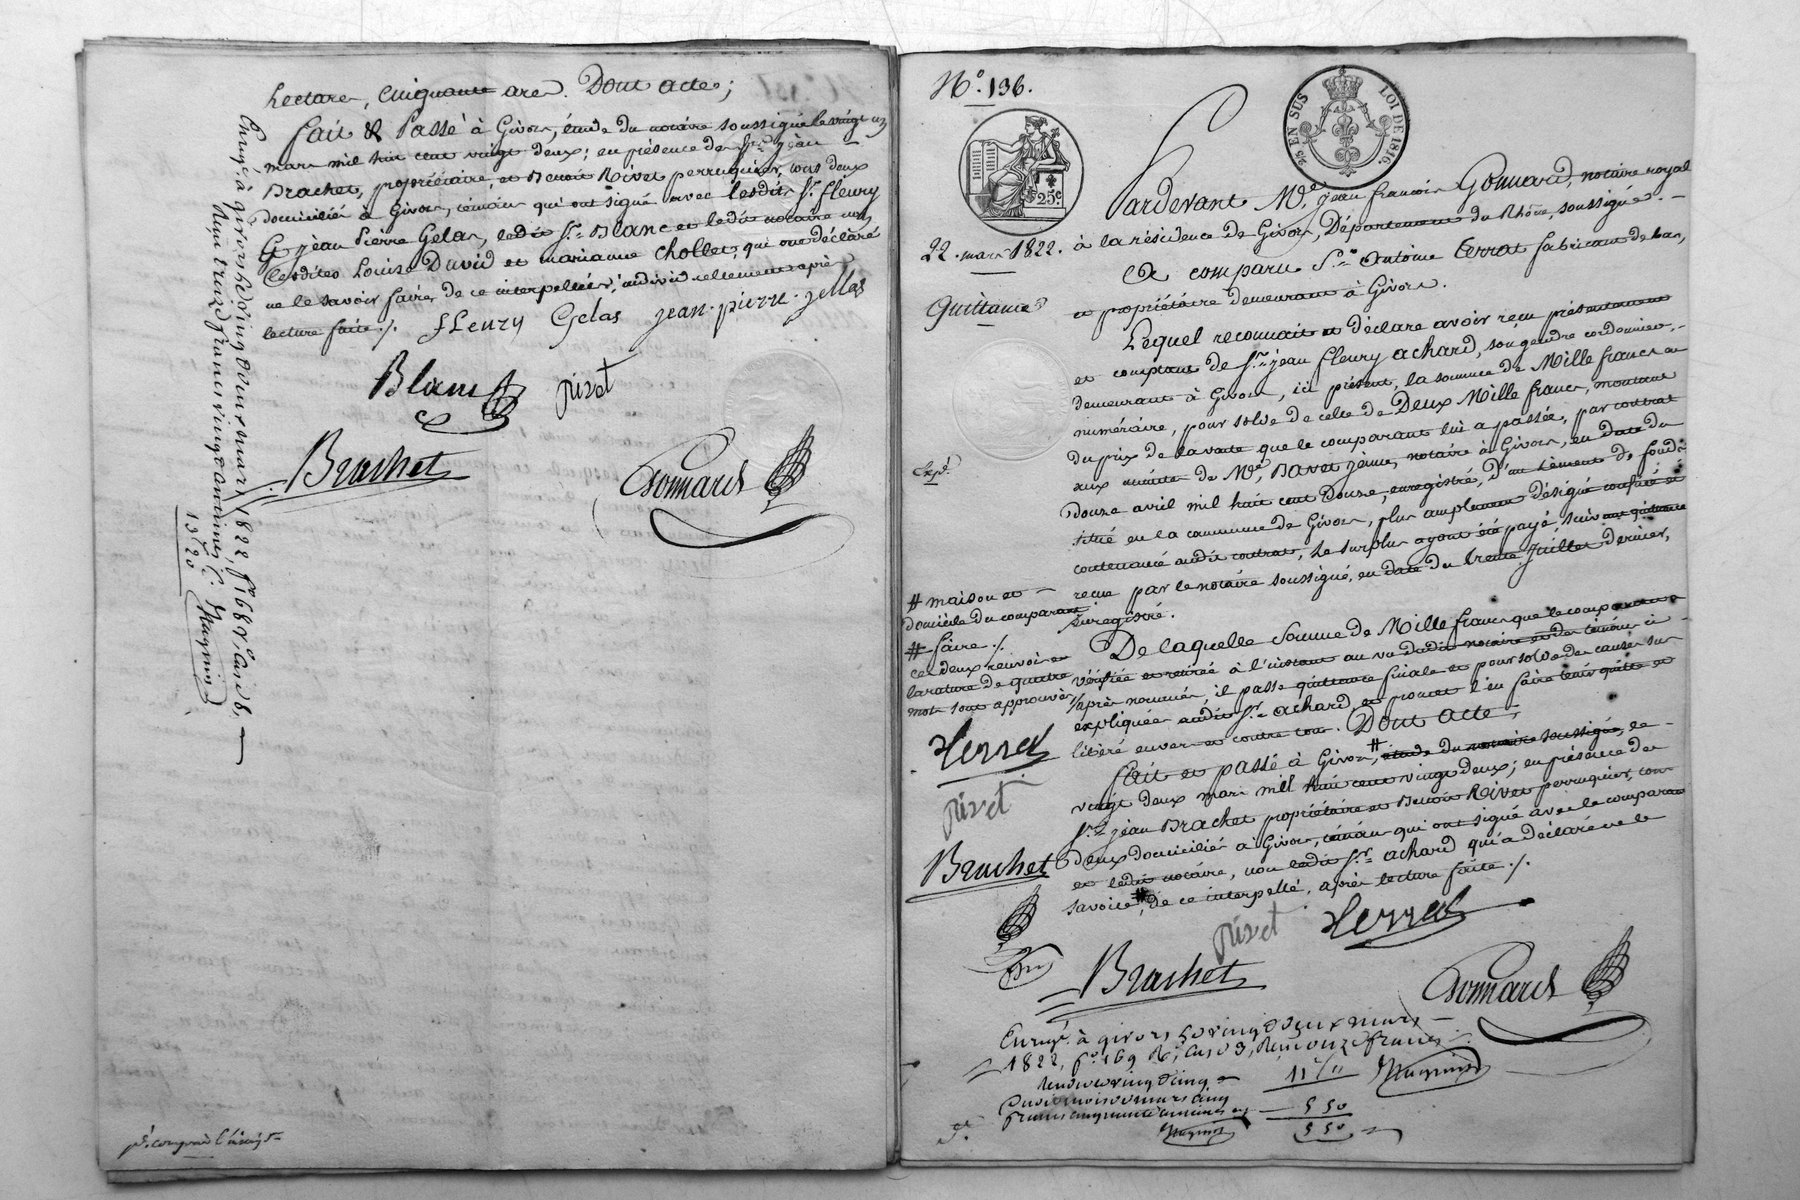 hectares, Cinquante ares. Dont acte;
fait & Passé à Givors, étude du notaire soussigné le vingt un
mars mil huit cent vingt deux; en présence des Srs jean
Brachet, propriétaire, et Benoit Rivet perruquier, tous deux
domiciliés à Givors, témoins qui ont signé avec lesdits Srs fleury
& jean Pierre Gelas, ledit Sr Blanc et ledit notaire non
lesdites Louise David et mariane Chollet, qui ont déclaré
ne le savoir faire, de ce interpellées, individuellement après
lecture faite ./.
fLeury Gelas jean-pierre-jellas
Blanc
rivet
Brachet
Gonnard
Enrgé à givors le vingt deux mars 1822, fo 168 Ro Case 8,
Reçu treize francs vingt centimes
13 20
N° 136.
25 EN SUS LOI DE 1816.
25c
22. mars 1822.
Quittance
Expé.
Pardevant Me jean francois Gonnard, notaire royal
à la résidence de Givors, Département du Rhône, soussigné. —
A comparu Sr Antoine terrat fabricant de bas,
et propriétaire demeurant à Givors.
Lequel reconnait et déclare avoir reçu présentement
et comptant de Sr jean fleury achard, son gendre cordonnier,
demeurant à Givors, ici présent, la somme de Mille francs en
numéraire, pour solde de celle de Deux Mille francs, montant
du prix de la vente que le comparant lui a passée, par contrat
aux minutes de Me Bavet jeune, notaire à Givors, en date du
douze avril mil huit cent douze, enregistré, d'un tènement de fonds
situé en la commune de Givors, plus amplement désigné confiné et
contenancé audit contrat, le surplus ayant été payé, suivant quittance
reçue par le notaire soussigné, en date du trente juillet dernier,
Enregistré.
De laquelle somme de Mille francs que le comparant a
vérifiée et retirée à l'instant au vu dudit notaire et des témoins ci
après nommés, il passe quittance finale et pour solde des causes sus
expliquées audit Sr achard et promet l'en faire tenir quitte et
libéré envers et contre tous. Dont acte,
fait et passé à Givors, # étude du notaire soussigné, le
vingt deux mars mil huit cent vingt deux; en présence des
Srs jean Brachet propriétaire et Benoit Rivet perruquier, tous
deux domiciliés à Givors, témoins qui ont signé avec le comparant
et ledit notaire, non ledit Sr achard qui a déclaré ne le
savoir # de ce interpellé, après lecture faite ./.
# maison et
domicile du comparant
# faire ./.
ces deux renvois et
la rature de quatre
mots sont approuvés
Terrat
rivet
Brachet
rivet Terrat
Brachet
Gonnard
Enrgé à givors le vingt deux mars
1822, fo 169 Ro, Case 3, Reçu onze francs
11 "
francs cinquante centimes
5 50
5 50